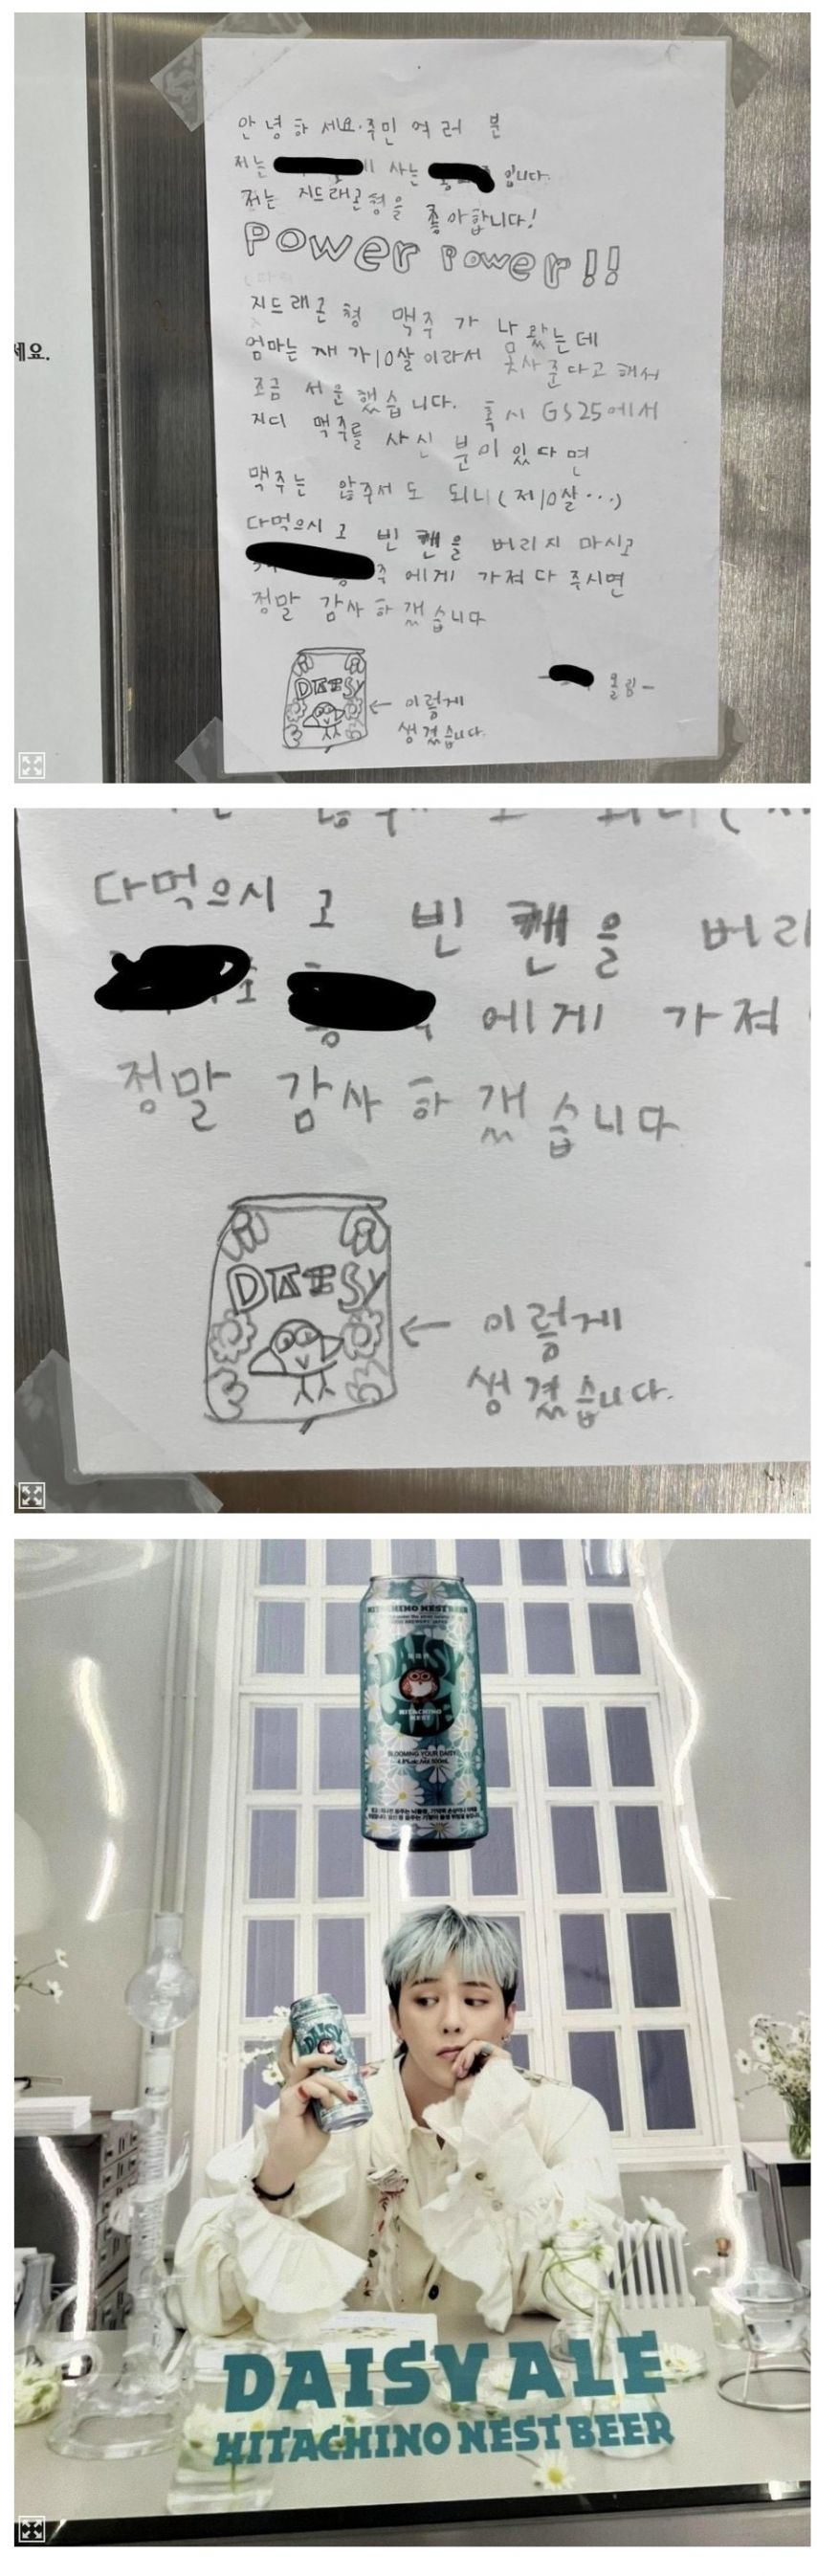 세요.
안녕하세요. 주민 여러분
저는 사는 입니다.
저는 지드래곤형을 좋아합니다!
POWER POWER!!
지드래곤 형 맥주가 나왔는데
엄마는 제가 10살이라서 못사준다고 해서
조금 서운했습니다. 혹시 GS25에서
지디 맥주를 사신 분이 있다면
맥주는 않주셔도 되니(제10살...)
다먹으시고 빈 캔을 버리지 마시고
에게 가져다 주시면
정말 감사하겠습니다
DAISY
← 이렇게
생겼습니다.
올림-
다먹으시고 빈 캔을 버리
에게 가져
정말 감사하겠습니다
DAISY
← 이렇게
생겼습니다.
HITACHINO NEST BEER
DAISY
HITACHINO
NEST
BLOOMING YOUR DAISY
DAISY
DAISY ALE
HITACHINO NEST BEER